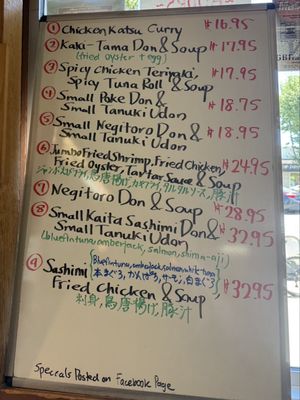 ① Chicken Katsu Curry $16.95
② Kaki-Tama Don & Soup $17.95
(fried oyster + egg)
③ Spicy Chicken Teriyaki, $17.95
Spicy Tuna Roll & Soup
④ Small Poke Don & $18.75
Small Tanuki Udon
⑤ Small Negitoro Don & $18.95
Small Tanuki Udon
⑥ Jumbo Fried Shrimp, Fried Chicken, $24.95
Fried Oyster, Tartar Sauce & Soup
ジャンボエビフライ, 鳥唐揚げ, カキフライ, タルタルソース, 豚汁
⑦ Negitoro Don & Soup $28.95
⑧ Small Kaita Sashimi Don & $32.95
Small Tanuki Udon
(bluefin tuna, amberjack, salmon, shima-aji)
⑨ Sashimi (Bluefin tuna, amberjack, salmon, white tuna
本まぐろ, かんぱち, サーモン, 白まぐろ) $32.95
Fried Chicken & Soup
刺身, 鳥唐揚げ, 豚汁
Specials Posted on Facebook Page